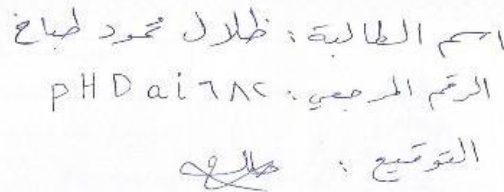 اسم الطالبة: ظلال محمود طباخ
الرقم المرجعي: pHDai٦٨٢
التوقيع: